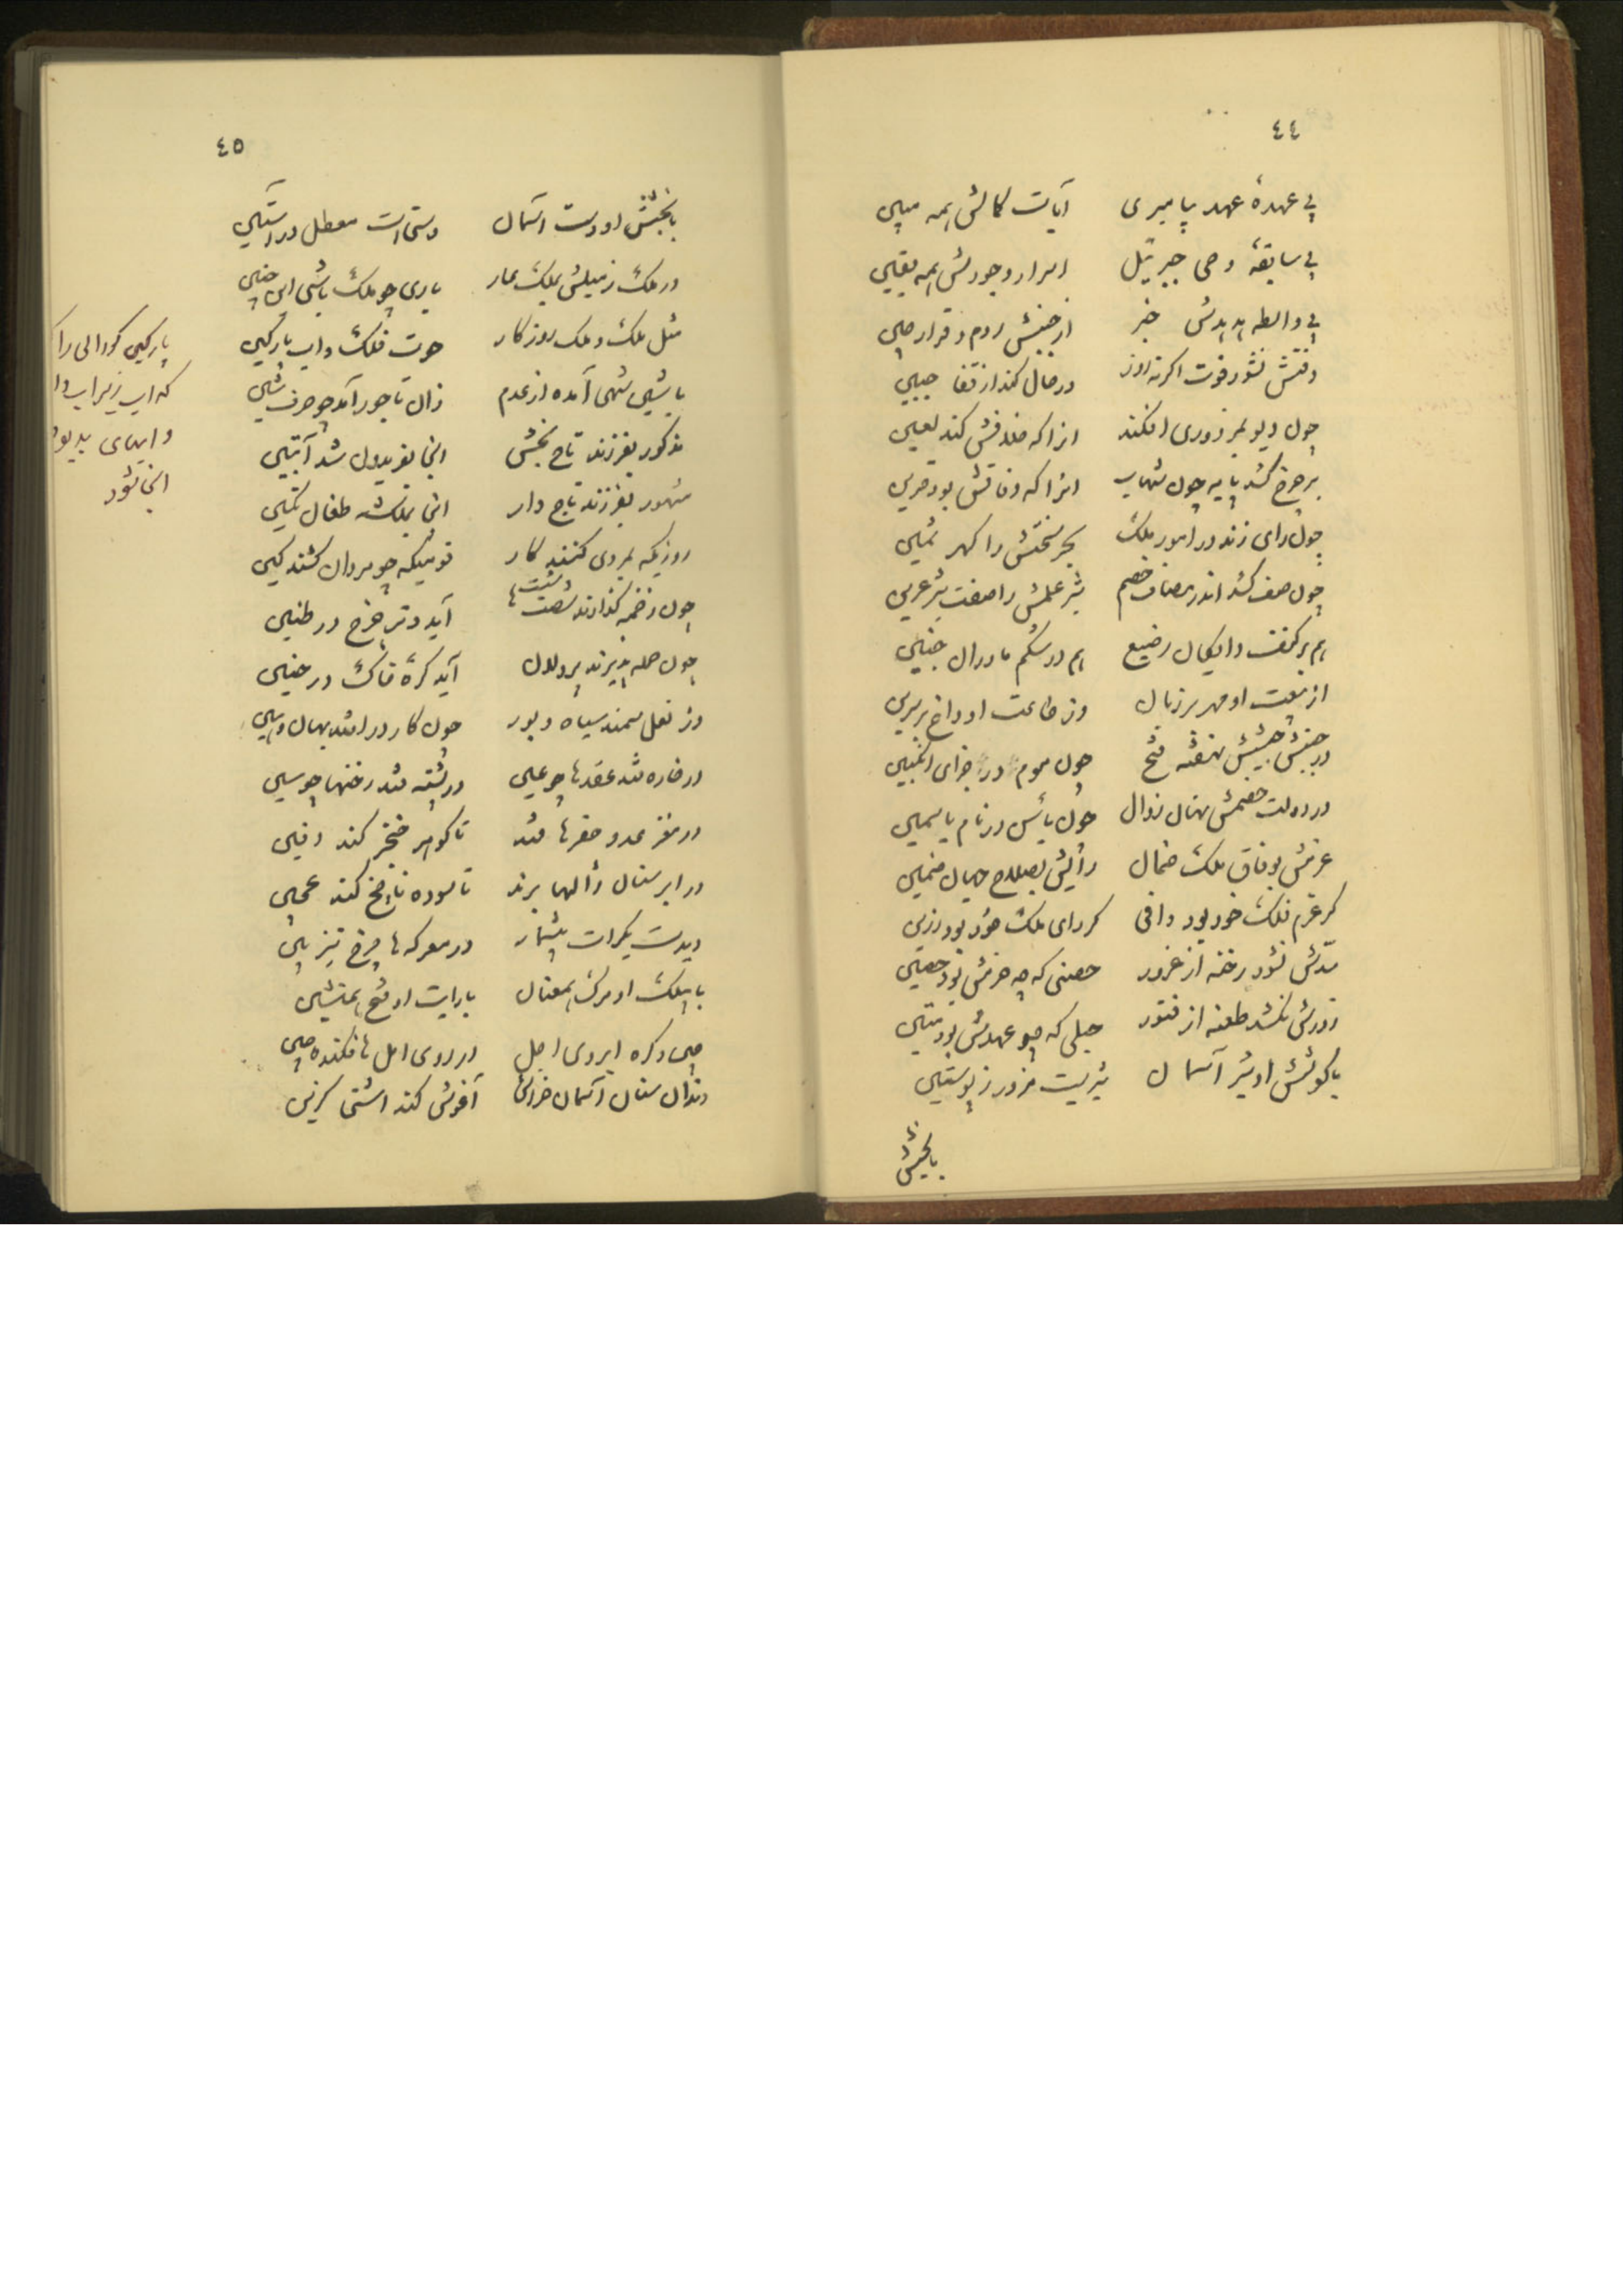 ٤٤
بی عهدهٔ عهد پیامبری آیات کمالش همه مبین
بی سابقهٔ وحی جبرئیل اسرار وجودش همه یقین
بی واسطه هدهدش خبر از جنبش روم و قرار چین
وقتش نشود فوت اگر نه روز در حال کند از قفا جبین
چون دیو بمزدوری افکند انرا که خلافش کند لعین
بر چرخ کشد پایه چون شهاب انرا که وفاقش بود قرین
چون رای زند در امور ملک بحر سخنش را گهر ثمین
چون صف کشد اندر مصاف خصم شیر علمش را صفت شیر عرین
هم بر کتف دایگان رضیع هم در شکم مادران جنین
از بیعت او مهر بر زبان وز طاعت او داغ بر سرین
در جنبش جیشش نهفته فتح چون موم در اجزای انگبین
در دولت خصمش نهان زوال چون یأس در نام یاسمین
عزمش بوفاق ملک ضمان رایش بصلاح جهان ضمین
گر عزم فلک خود بود وافی گر رای ملک خود بود رزین
سدش نشود رخنه از غرور حصنی که چه حزمش بود حصین
زورش نکشد طعنه از فتور حبلی که چو عهدش بود متین
با کوشش او شیر آسمان شیریست مزور ز پوستین
بابخشش
٤٥
بابخشش او دست اسمان دستی است معطل در استین
در ملک زمینش بملک عار باری چو ملک باشی این چنین
مثل ملک و ملک روزگار حوت فلک و اب پارگین
با شین شهی آمده از عدم زان تاجور آمد چو حرف شین
مذکور بفرزند تاج بخش انجا بفریدون شد آبتین
مشهور بفرزند تاج دار انجا بملکشه طغان تکین
روزیکه بمردی کنند کار قومیکه چو مردان کشند کین
چون زخمه گذارند شصتها آید وتر چرخ در طنین
چون حمله پذیرند پردلان آید کرهٔ خاک در حنین
وز نعل سمند سیاه و بور
در خاره شد عقدها چو عین در پشته شد رخنها چو سین
در مغز عدو حفرها شد تا گوهر خنجر کند دفین
در ابر سنان ژالها برند تا سوده ناچخ کند عجین
در معرکه ها چرخ تیز بین
با بیلک او مرگ همعنان با رایت او فتح همنشین
چین و گره ابروی اجل در روی امل ها فکنده چین
دندان سنان آسمان خراش آغوش کند
پارگین گودالی را
که اب زیراب
و ابهای پلید
انجا شود